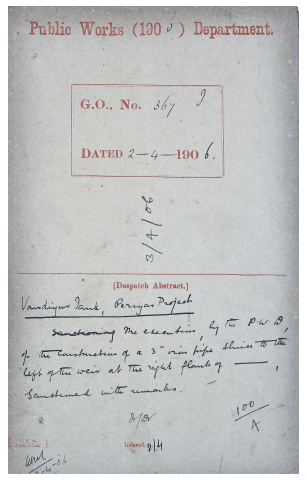 Public Works (190 ) Department.
G.O., No. 367 I
DATED 2—4—1906.
3/4/06
[Despatch Abstract.]
Vandiyur Tank, Periyar Project
Sanctioning the execution, by the P.W.D,
of the construction of a 3" iron pipe sluice to the
left of the weir at the right flank of ———,
Sanctioned with remarks.
100
A
Indexed. 9/4